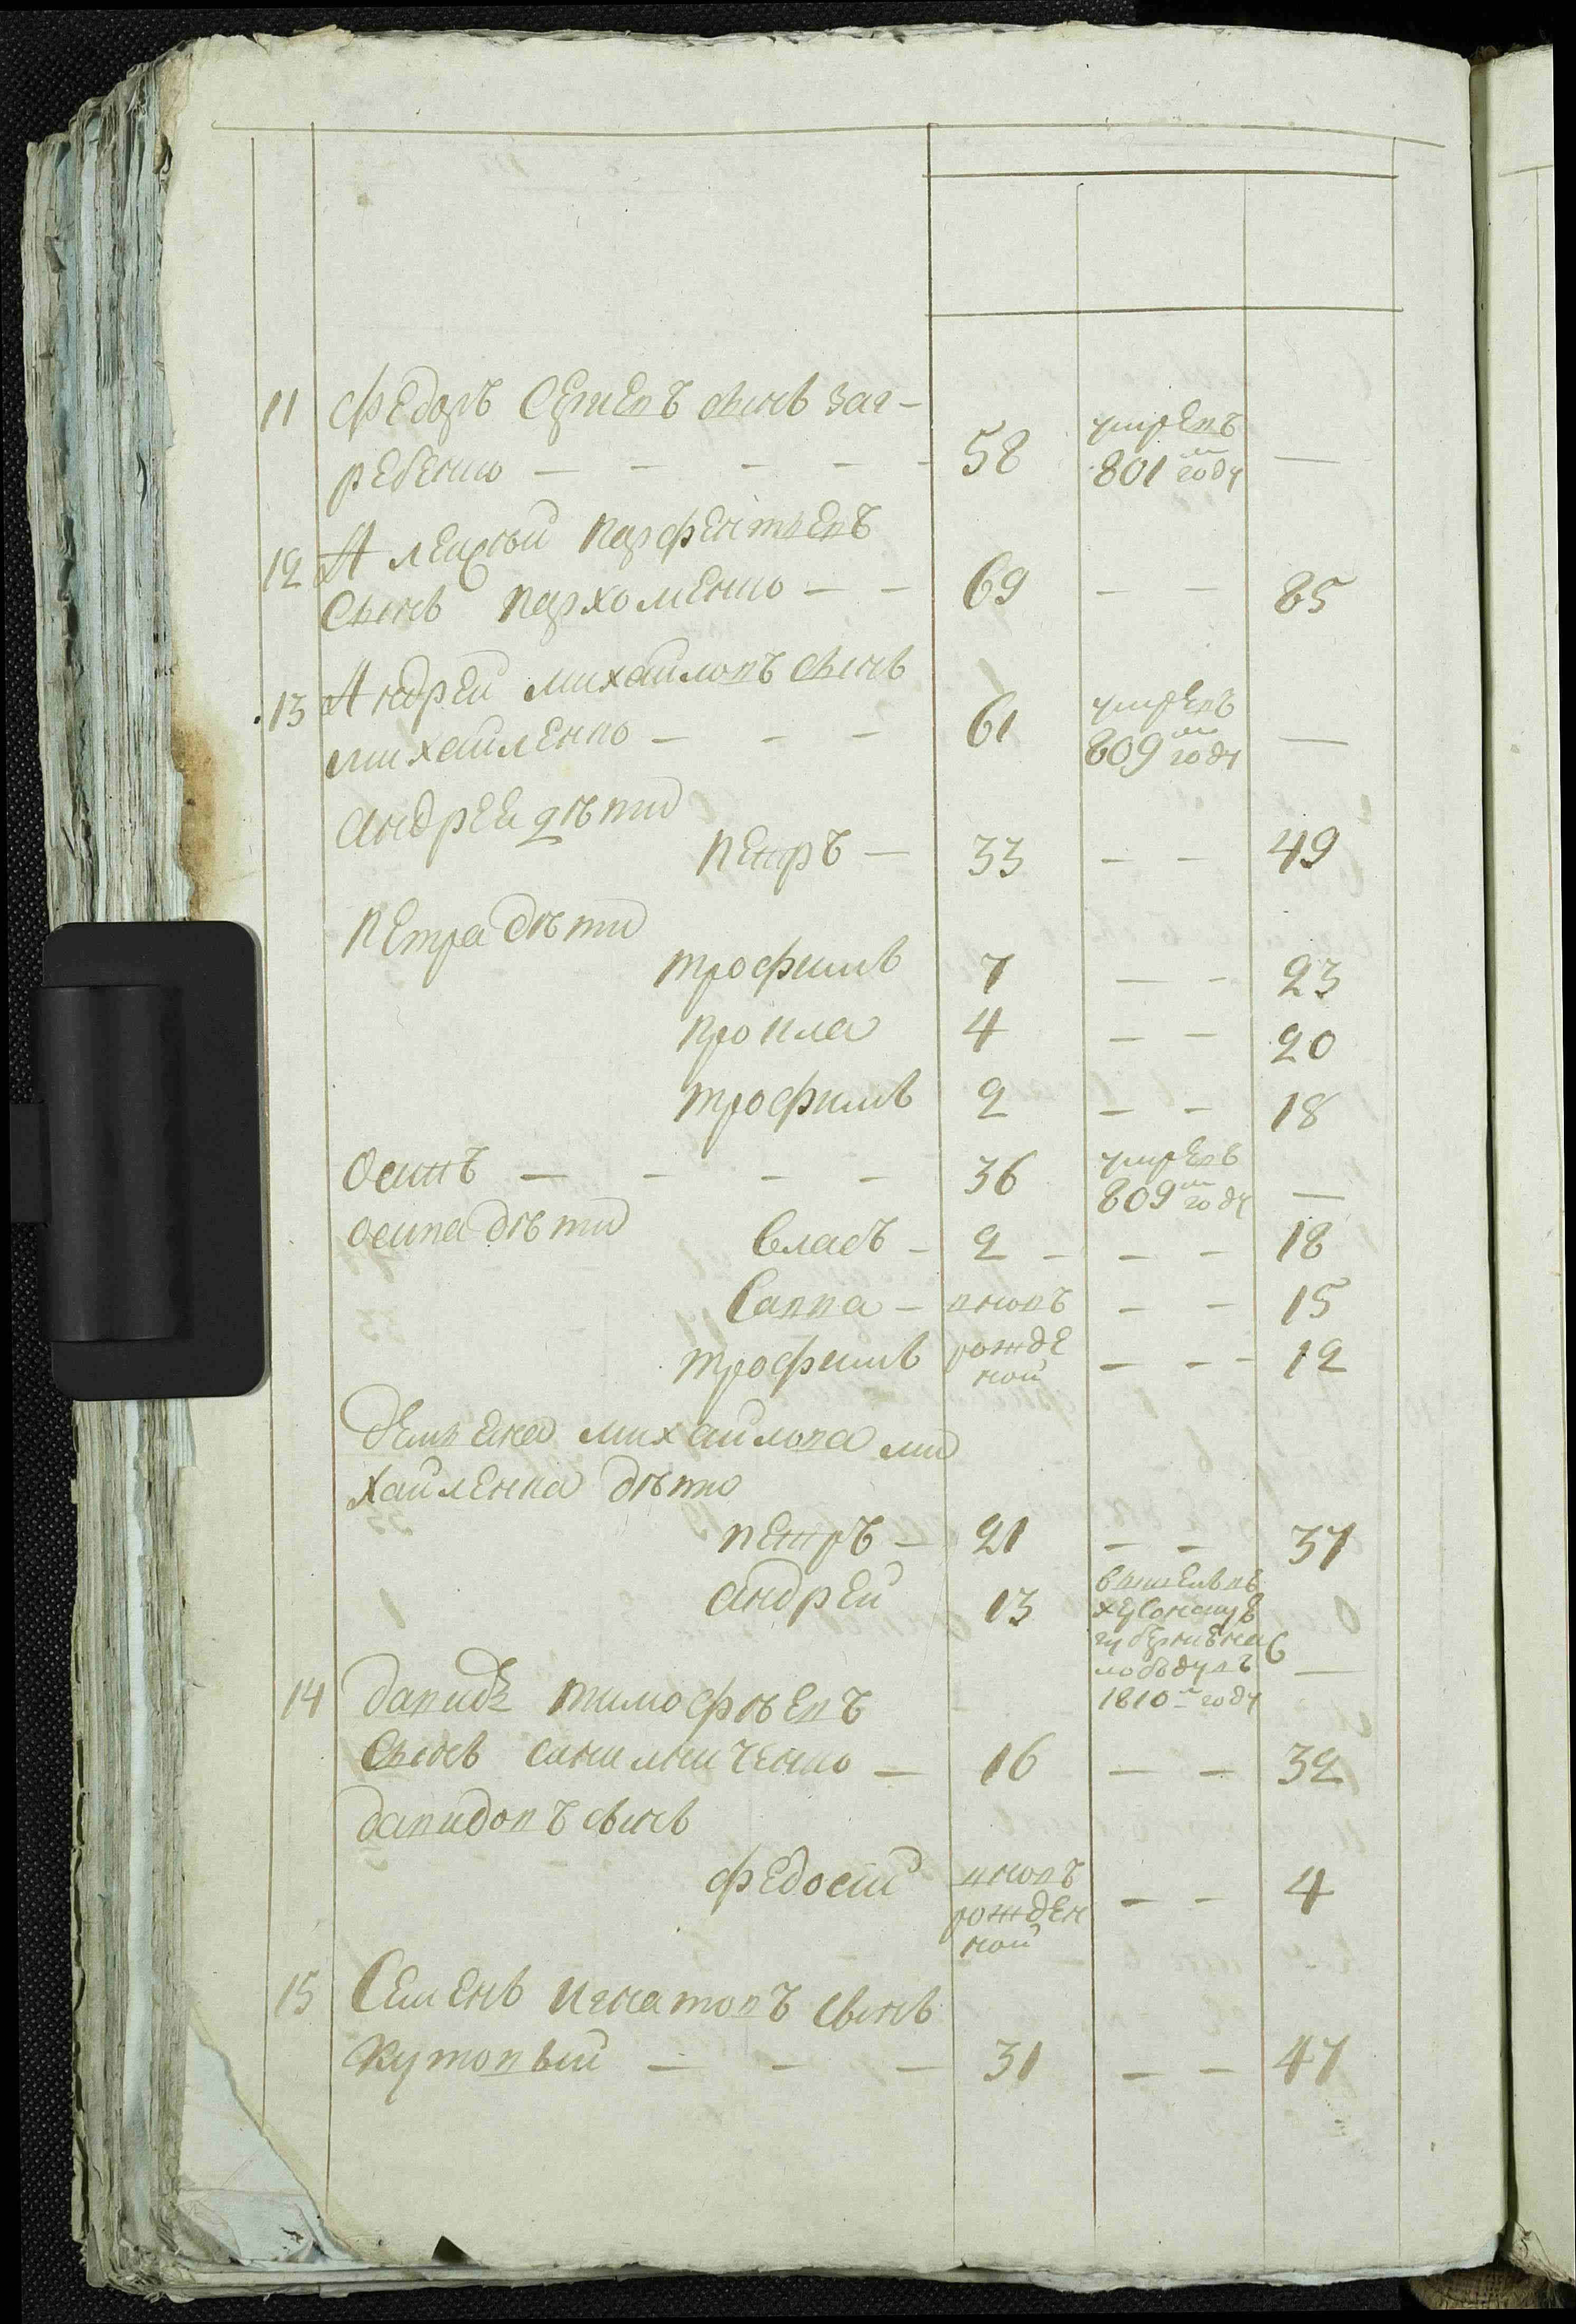 11 Федоръ Сергѣевъ сынъ Заг-
ребенко — — — — — 58 умре въ 801м году —
12 Алексѣй Парфентьевъ
сынъ Пархоменко — — 69 — — 85
13 Андрей Михайловъ сынъ
Михайленко — — — 61 умре въ 809м году —
Андрея дѣти
Петръ — 33 — — 49
Петра дѣти
Трофимъ 7 — — 23
Прокла 4 — — 20
Трофимъ 2 — — 18
Осипъ — — — — 36 умре въ 809м году —
Осипа дѣти Власъ — 2 — — — 18
Савва — вновь — — 15
Трофимъ рожденой — — — 12
Демьяна Михайлова Ми
хайленка дѣти
Петръ — 21 — — 37
Андрей 13
губерніи
въ
1810м году —
14 Давидъ Тимофѣевъ
сынъ — 16 — — 32
Давидовъ сынъ
Федосій вновь рожденной — — 4
15 Семенъ Игнатовъ сынъ
Кутовый — — — 31 — — 47